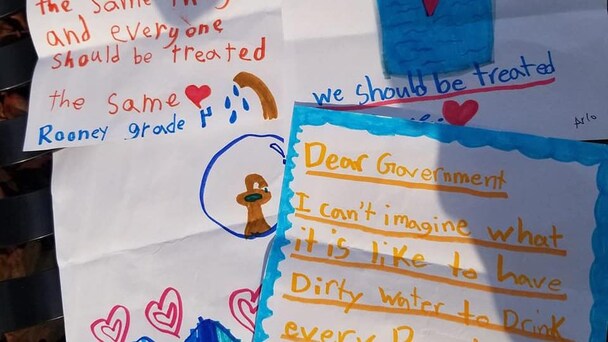 the same
and everyone
should be treated
the same
Rooney grade 4
we should be treated
Arlo
Dear Government
I can't imagine what
it is like to have
Dirty water to Drink
every